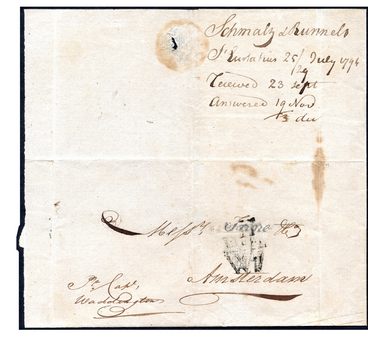 Schmaltz & Runnels
St Eustatius 25/ July 1794
/29
Received 23 Sept
Answered 19 Nov
/3 dec
Messrs & Co
Amsterdam
Pr Capt
Waddington